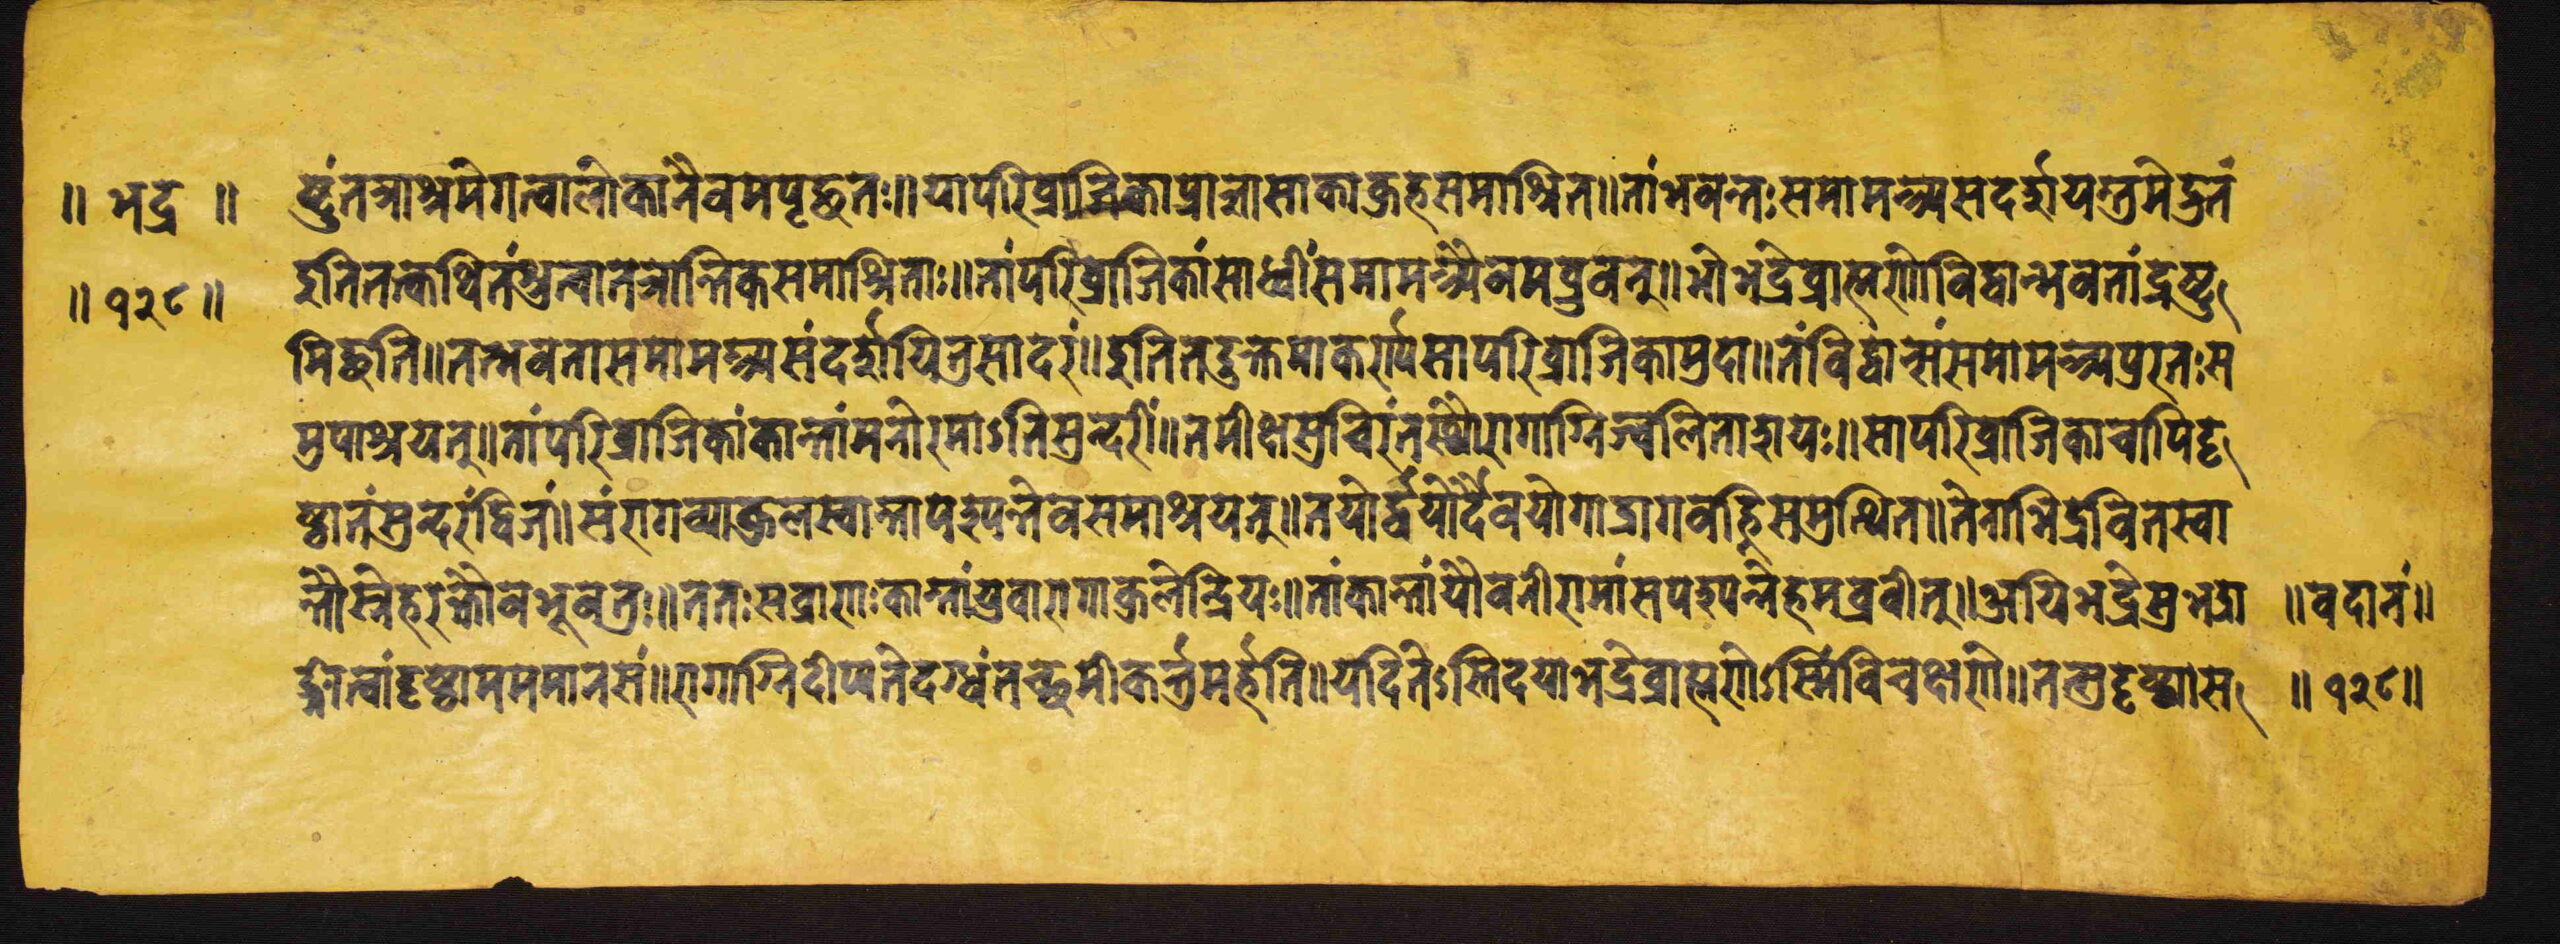 ॥ भद्र ॥ ष्टुं तत्राश्रमे गत्वा लोकानेवमपृच्छतः॥ या परिव्राजिका प्राज्ञा सा का कुह समाश्रित॥ तां भवन्तः समामन्त्र्य सदर्शायन्तु मे द्रुतं
॥ १२८ ॥ इति तत्कथितं श्रुत्वा तज्ञोन्तिक समाश्रिताः॥ तां परिव्राजिकां साध्वीं समामन्त्र्यैवमब्रुवन्॥ भो भद्रे ब्राह्मणो विद्वान्भवतां द्रष्टु
मिच्छति॥ तन्भवता समामन्त्र्य संदर्शायितु सादरं॥ इति तदुक्तमाकर्ण्य सा परिव्राजिका मुदा॥ तं विद्वांन्सं समामन्त्र्य पुरतः स
मुपाश्रयत्॥ तां परिव्राजिकां कान्तां मनोरमाऽतिसुन्दरीं॥ तमीक्ष सुचिरं तस्थौ रागाग्निज्वलिताशयः॥ सा परिव्राजिका चापि दृ
ष्ट्वा तं सुन्दरं द्विजं॥ संरागव्याकुलस्वान्ता पश्यन्तेव समाश्रयत्॥ तयोर्द्वयोर्दैवयोगाद्रागवह्निसमुत्थित॥ तेनाभिद्रेवितस्वा
न्तौ स्नेहरक्तौ बभूवतुः॥ ततः स ब्राह्मणः कान्तां युवा रागाकुलेन्द्रियः॥ तां कान्तां यौवनीरामां स पश्यन्नेहमब्रवीत्॥ अयि भद्रे सुभद्रा ॥ वदानं॥
ङ्गी त्वां दृष्ट्वा मम मानसं॥ रागाग्निदीप्यते दग्धं तच्छमीकर्तुमर्हति॥ यदि तेऽस्ति दया भद्रे ब्राह्मणेऽस्मिं विचक्षणे॥ तत्सुदृष्ट्या स ॥ १२८॥